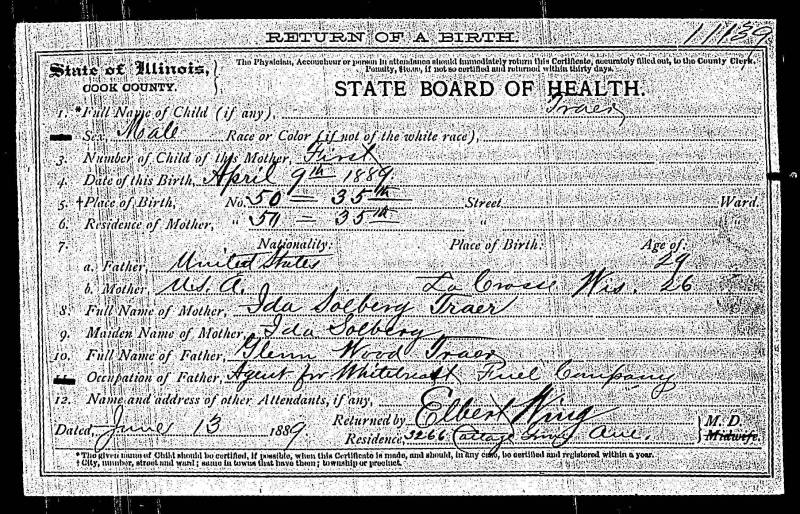 RETURN OF A BIRTH.
11139
State of Illinois,
COOK COUNTY.
The Physician, Accoucheur or person in attendance should immediately return this Certificate, accurately filled out, to the County Clerk.
Penalty, $10.00, if not so certified and returned within thirty days.
STATE BOARD OF HEALTH.
1. *Full Name of Child (if any), Traer
Sex Male Race or Color (if not of the white race),
3. Number of Child of this Mother, First
4. Date of this Birth, April 9th 1889.
5. †Place of Birth, No. 50 = 35th Street Ward.
6. Residence of Mother, " 50 = 35th " "
7. Nationality: Place of Birth: Age of:
a. Father, United States 29
b. Mother, U.S.A. La Crosse Wis. 26
8. Full Name of Mother, Ida Solberg Traer
9. Maiden Name of Mother, Ida Solberg
10. Full Name of Father, Glenn Wood Traer
11. Occupation of Father, Agent for Whitebreast Fuel Company
12. Name and address of other Attendants, if any,
Returned by Elbert Wing M.D.
Dated, June 13 1889 Residence, 3266 Cottage Grove Ave. Midwife.
*The given name of Child should be certified, if possible, when this Certificate is made, and should, in any case, be certified and registered within a year.
†City, number, street and ward; same in towns that have them; township or precinct.